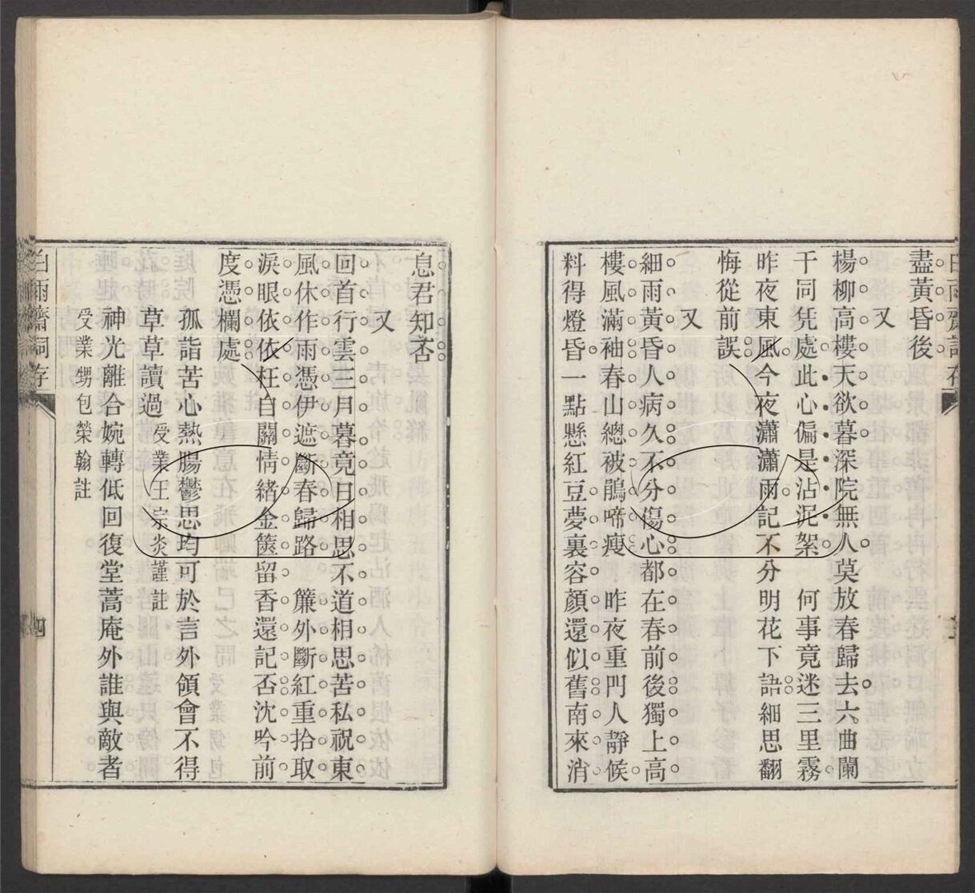 盡黃昏後
又
楊柳高樓天欲暮深院無人莫放春歸去六曲闌
干同凭處此心偏是沾泥絮　何事竟迷三里霧
昨夜東風今夜瀟瀟雨記不分明花下語細思翻
悔從前誤
又
細雨黃昏人病久不分傷心都在春前後獨上高
樓風滿袖春山總被鵑啼瘦　昨夜重門人靜候
料得燈昏一點懸紅豆夢裏容顏還似舊南來消
息君知否
又
回首行雲三月暮竟日相思不道相思苦私祝東
風休作雨憑伊遮斷春歸路　簾外斷紅重拾取
淚眼依依枉自關情緒金篋留香還記否沈吟前
度憑欄處
孤詣苦心熱腸鬱思均可於言外領會不得
草草讀過受業王宗炎謹註
神光離合婉轉低回復堂蒿庵外誰與敵者
受業甥包榮翰註
白雨齋詞存
四